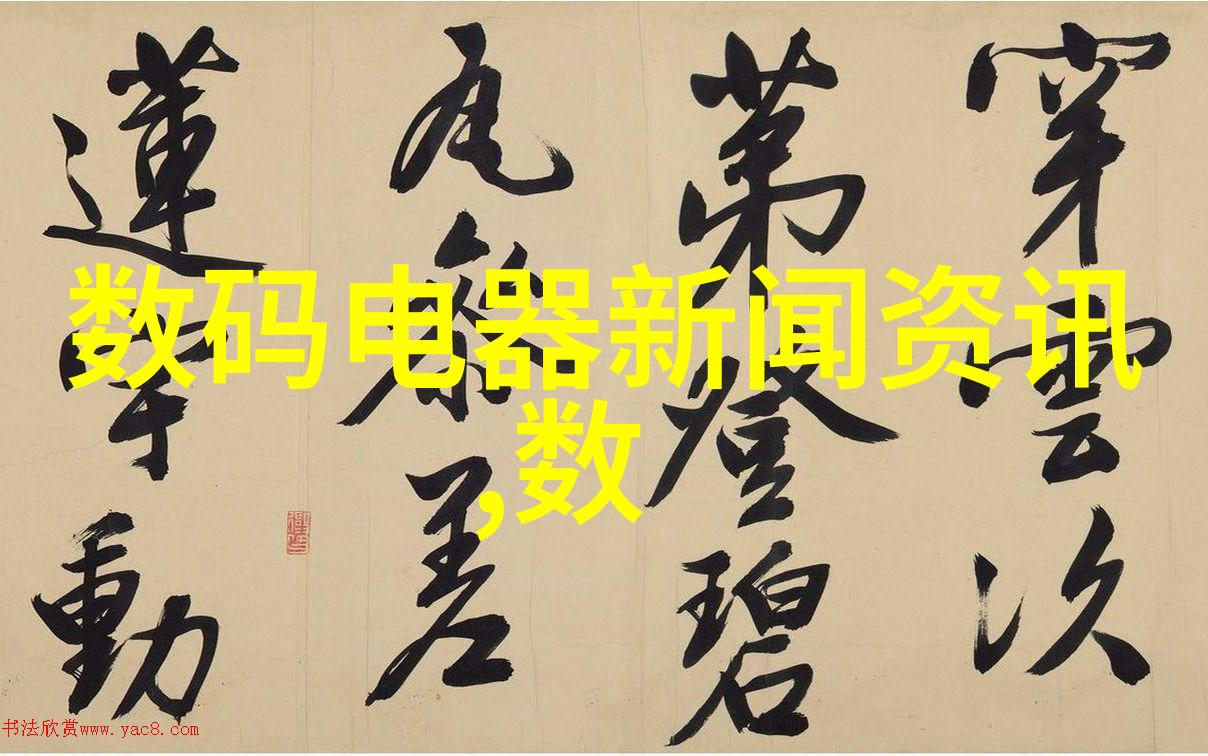 穿雲次
第登碧
瓦參差
蓮宇動
数码电器新闻资讯
,数
书法欣赏www.yac8.com